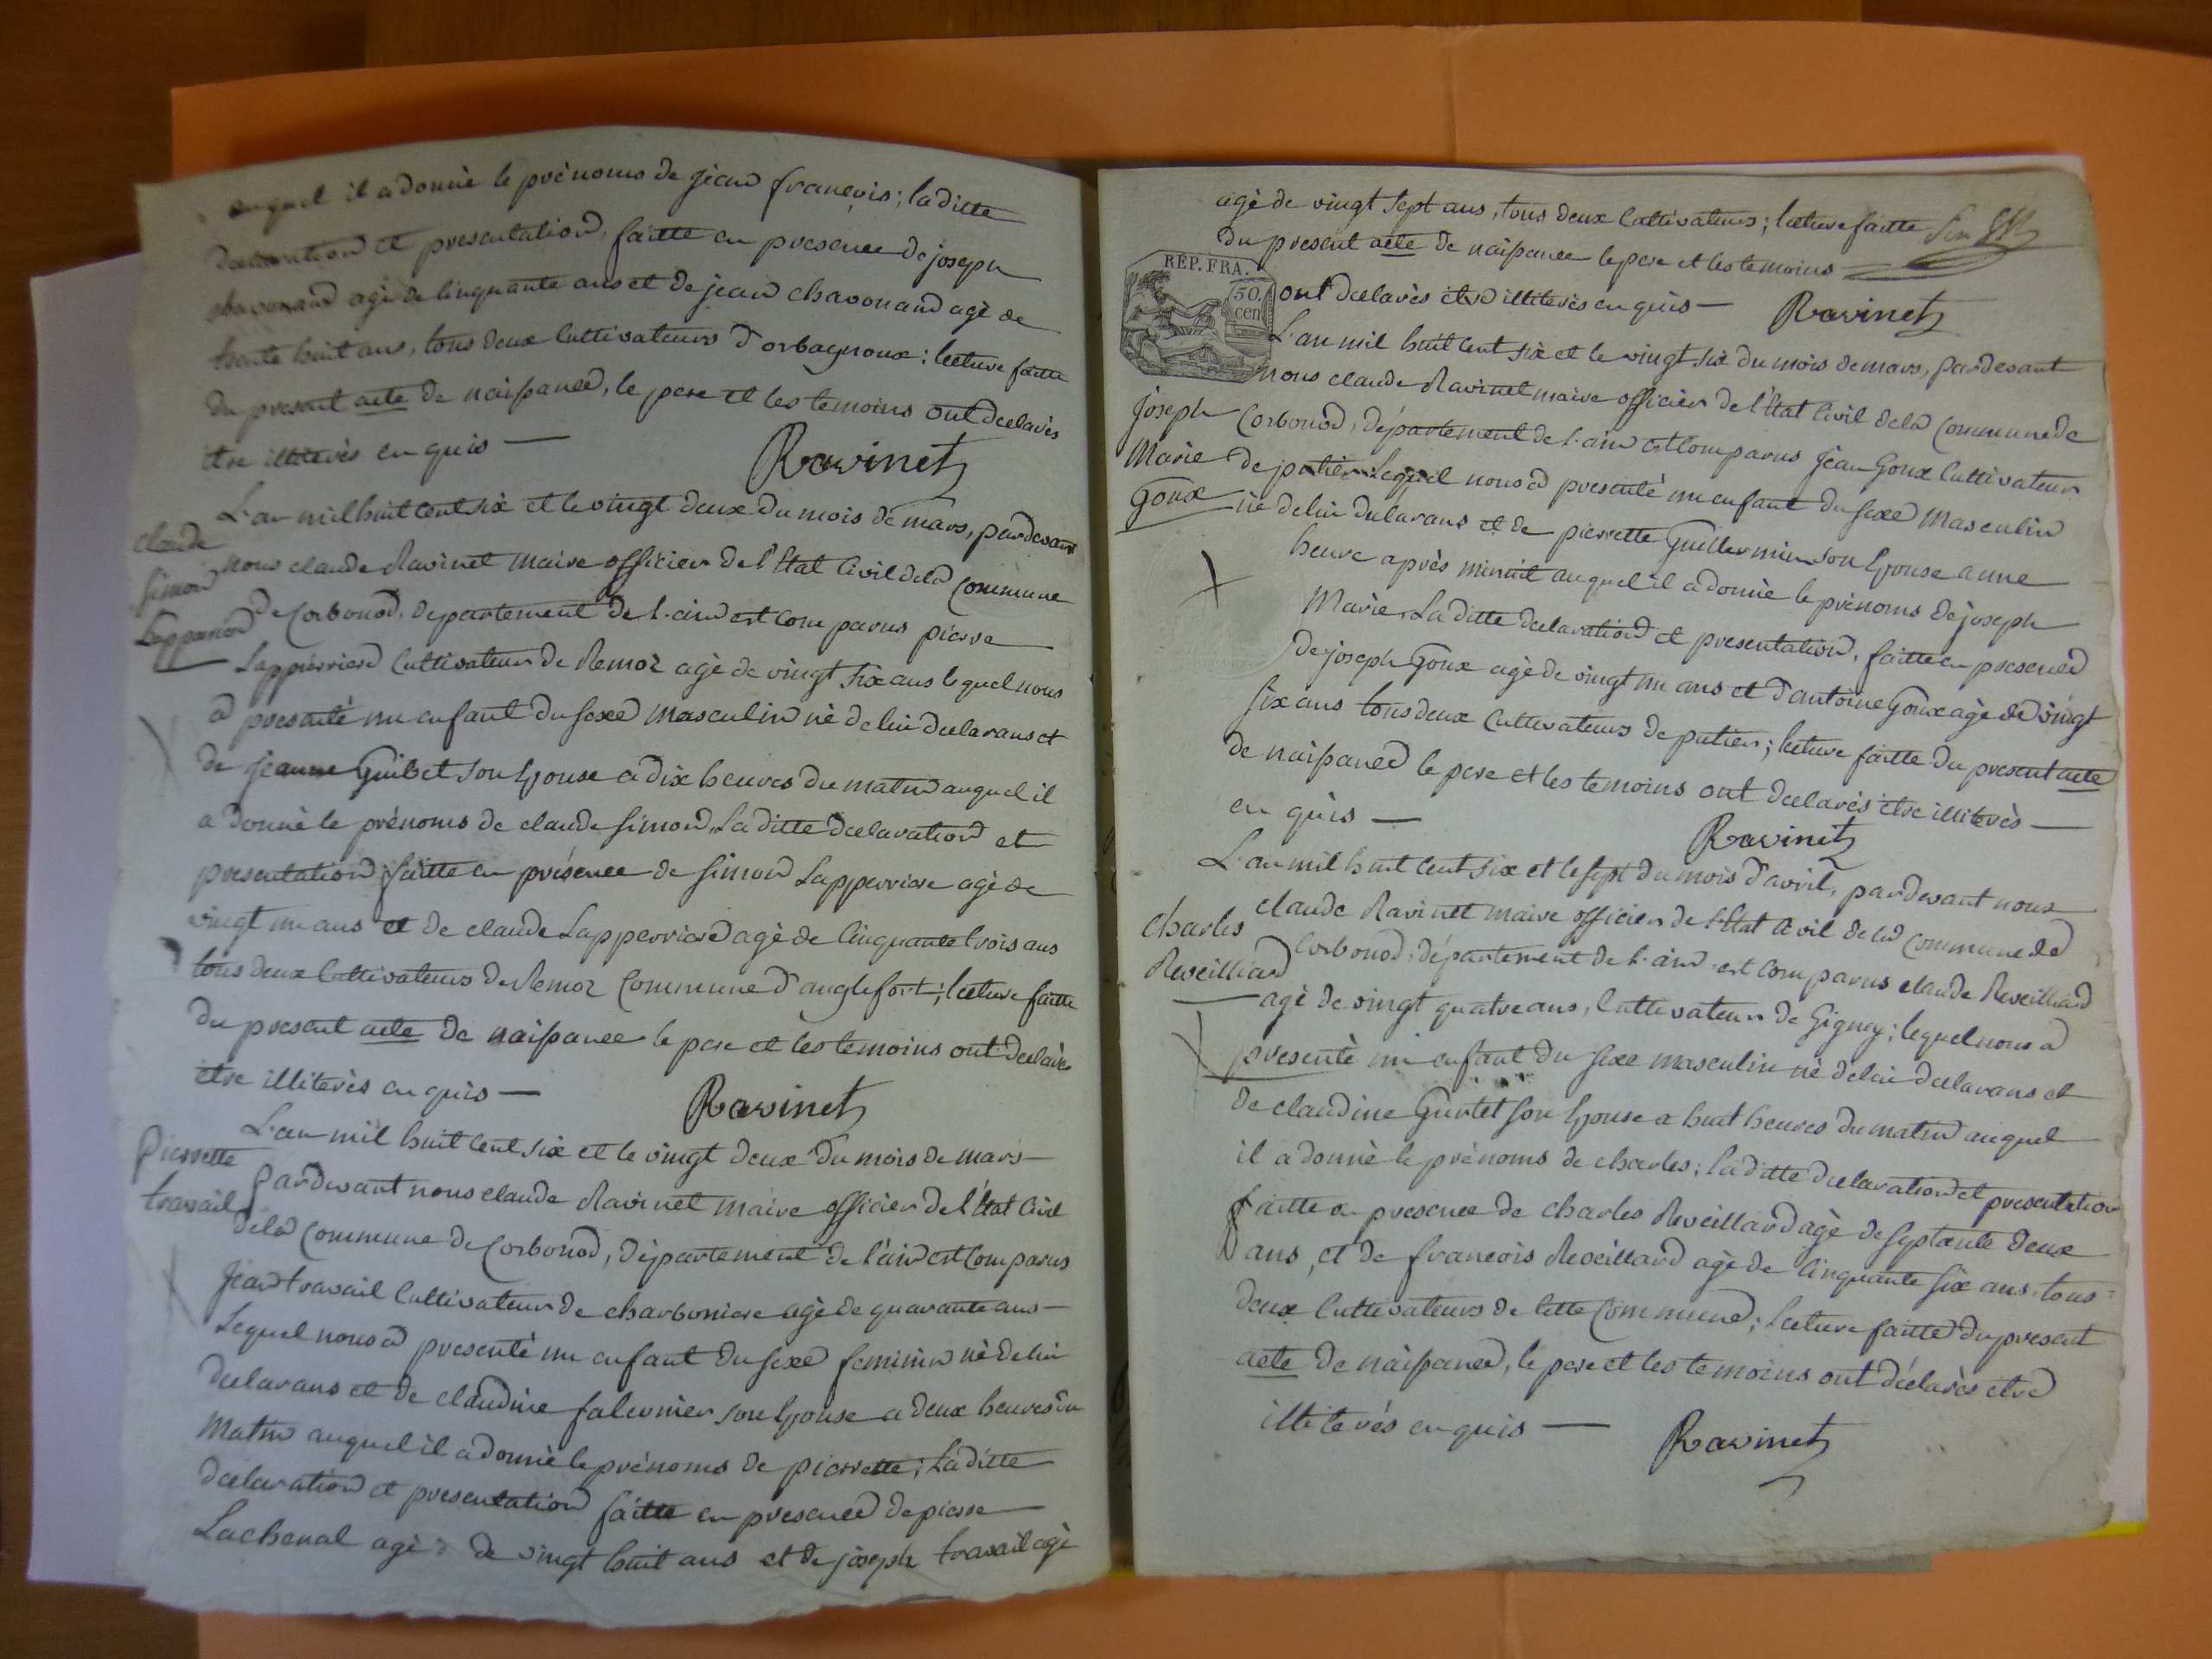 auquel il a donnè le prènoms de jean françois; laditte
declaration et presentation, faitte en presence de joseph
chavonand agè de cinquante ans et de jean chavonand agè de
trente huit ans, tous deux cultivateurs d'orbagnoux; lecture faitte
du present acte de naissance, le pere et les temoins ont declarès
itre illiterès en quis —
Ravinet
L'an mil huit cent six et le vingt deux du mois de mars, pardevant
claude
nous claude Ravinet maire officier de l'Etat Civil de la Commune
Simon
de Corbonod, departement de l'ain est comparus pierre
Lapperriere Cultivateur de Remoz agè de vingt six ans lequel nous
a presentè un enfant du sexe masculin nè de lui declarans et
de jeanne Guibet son Epouse a dix heures du matin auquel il
a donnè le prènoms de claude simon, Laditte declaration et
presentation faitte en présence de simon Lapperriere agè de
vingt un ans et de claude Lapperriere agè de Cinquante trois ans
tous deux Cultivateurs de Remoz Commune d'anglefort; lecture faitte
du present acte de naissance le pere et les temoins ont declarès
etre illiterès en quis —
Ravinet
L'an mil huit cent six et le vingt deux du mois de mars —
Pierrette
Pardevant nous claude Ravinet maire officier de l'Etat Civil
travail
de la Commune de Corbonod, département de l'ain est Comparus
Jean travail Cultivateur de charboniere agè de quarante ans —
Lequel nous a presentè un enfant du sexe feminin nè de lui
declarans et de claudine falconier son Epouse a deux heures du
Matin auquel il a donnè le prènoms de pierrette; Laditte
declaration et presentation faitte en presence de pierre
Lachenal agè de vingt huit ans et de joseph travail agè
agè de vingt sept ans, tous deux Cultivateurs; lecture faitte
du present acte de naissance le pere et les temoins
REP. FRA.
50 cen
ont declarès etre illiterès en quis —
Ravinet
L'an mil huit cent six et le vingt six du mois de mars, pardevant
nous claude Ravinet maire officier de l'Etat Civil de la Commune de
Joseph
Corbonod, département de l'ain est Comparus Jean Goux Cultivateur
Marie
de putier Lequel nous a presentè un enfant du sexe Masculin
Goux
nè de lui declarans et de pierrette Guillermin son Epouse a une
heure après minuit auquel il a donnè le prènoms de joseph
Marie, Laditte declaration et presentation, faitte en presence
de joseph Goux agè de vingt un ans et d'antoine Goux agè de vingt
six ans tous deux Cultivateurs de putier; lecture faitte du present acte
de naissance le pere et les temoins ont declarès etre illiterès —
en quis —
Ravinet
L'an mil huit cent six et le sept du mois d'avril, pardevant nous
claude Ravinet maire officier de l'Etat Civil de la Commune de
Charles
Corbonod, département de l'ain est Comparus claude Reveilliard
Reveilliard
agè de vingt quatre ans, Cultivateur de Gigney; lequel nous a
presentè un enfant du sexe masculin nè de lui declarans et
de claudine Guirtet son Epouse a huit heures du matin auquel
il a donnè le prènoms de charles; laditte declaration et presentation
faitte en presence de charles Reveillard agè de septante deux
ans, et de francois Reveillard agè de Cinquante six ans, tous
deux Cultivateurs de Cette Commune; lecture faitte du present
acte de naissance, le pere et les temoins ont déclarès etre
illiterés en quis —
Ravinet